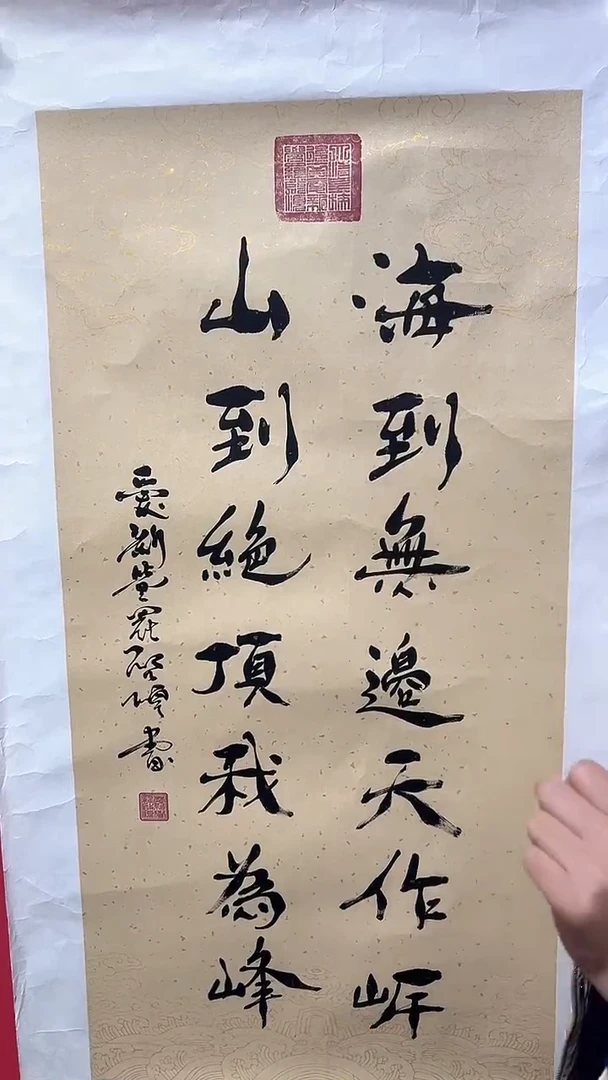 海到無邊天作岸
山到絶頂我為峰
愛新覺羅啟驤書